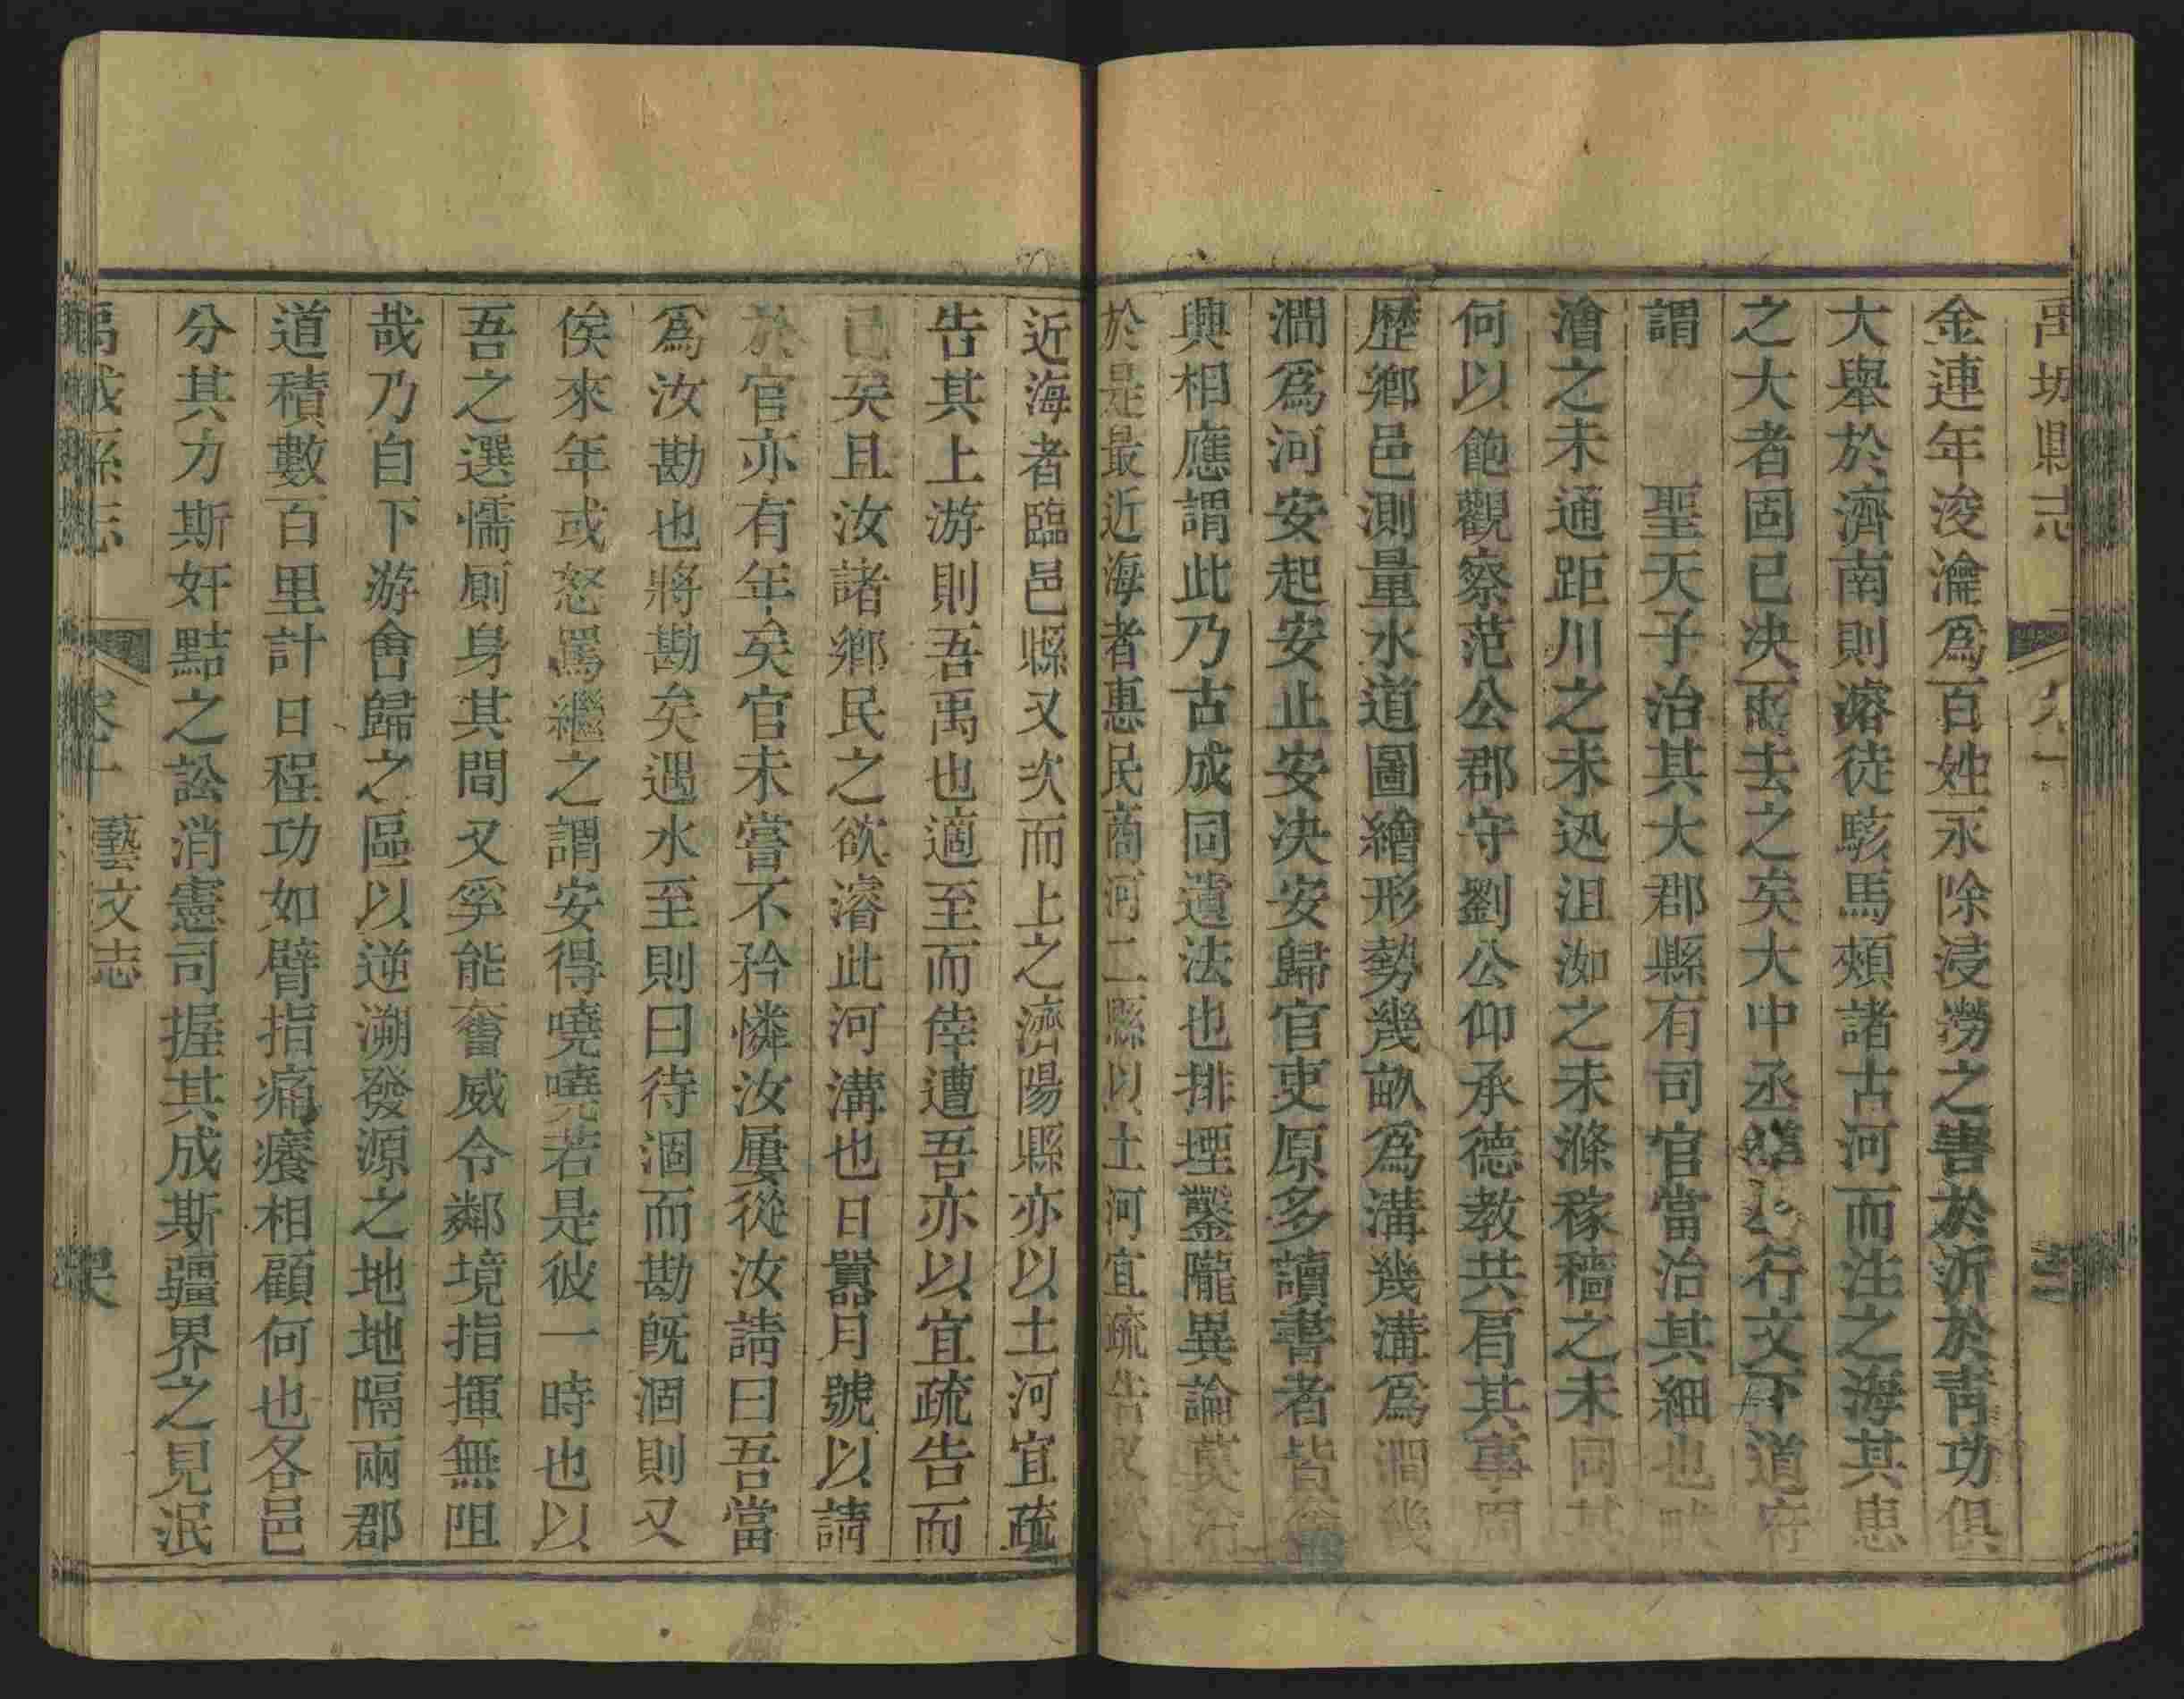 禹城縣志
金連年浚瀹爲百姓永除浸澇之害於沂於青功俱
大舉於濟南則濬徒駭馬頰諸古河而注之海其患
之大者固已决而去之矣大中丞 公行文下道府
謂 聖天子治其大郡縣有司官當治其細也畎
澮之未通距川之未迅沮洳之未滌稼穡之未同其
何以飽觀察范公郡守劉公仰承德教共胥其事周
歷鄉邑測量水道圖繪形勢幾畝爲溝幾溝爲澗幾
澗爲河安起安止安决安歸官吏原多讀書者皆
興相應謂此乃古成同遺法也排堙鑿隴異論莫
於是最近海者惠民商河二縣以土河宜疏告又
近海者臨邑縣又次而上之濟陽縣亦以土河宜疏
告其上游則吾禹也適至而倖遭吾亦以宜疏告而
已矣且汝諸鄉民之欲濬此河溝也日囂月號以請
於官亦有年矣官未嘗不矜憐汝屢從汝請曰吾當
爲汝勘也將勘矣遇水至則曰待涸而勘旣涸則又
俟來年或怒罵繼之謂安得嘵嘵若是彼一時也以
吾之選懦厠身其間又奚能奮威令鄰境指揮無阻
哉乃自下游會歸之區以逆溯發源之地地隔兩郡
道積數百里計日程功如臂指痛癢相顧何也各邑
分其力斯奸黠之訟消憲司握其成斯疆界之見泯
禹城縣志 卷十 藝文志